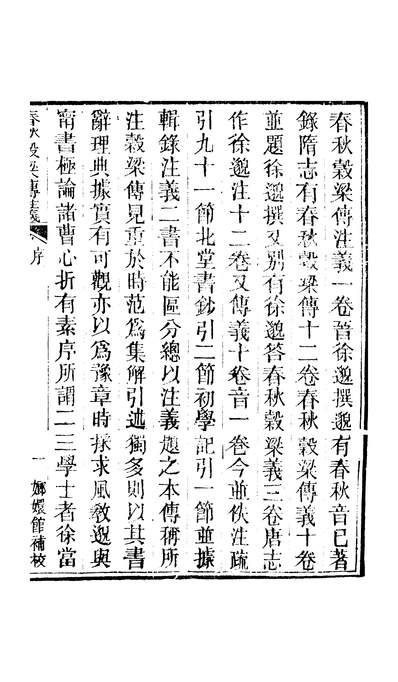 春秋穀梁傳注義一卷晉徐邈撰邈有春秋音已著
錄隋志有春秋穀梁傳十二卷春秋穀梁傳義十卷
並題徐邈撰又別有徐邈荅春秋穀梁義三卷唐志
作徐邈注十二卷又傳義十卷音一卷今並佚注疏
引九十一節北堂書鈔引二節初學記引一節並據
輯錄注義二書不能區分總以注義題之本傳稱所
注穀梁傳見重於時范爲集解引述獨多則以其書
辭理典據實有可觀亦以爲豫章時採求風敎邈與
甯書極論諸曹心折有素序所謂二三學士者徐當
春秋穀梁傳注義 序 一 嫏嬛館補校